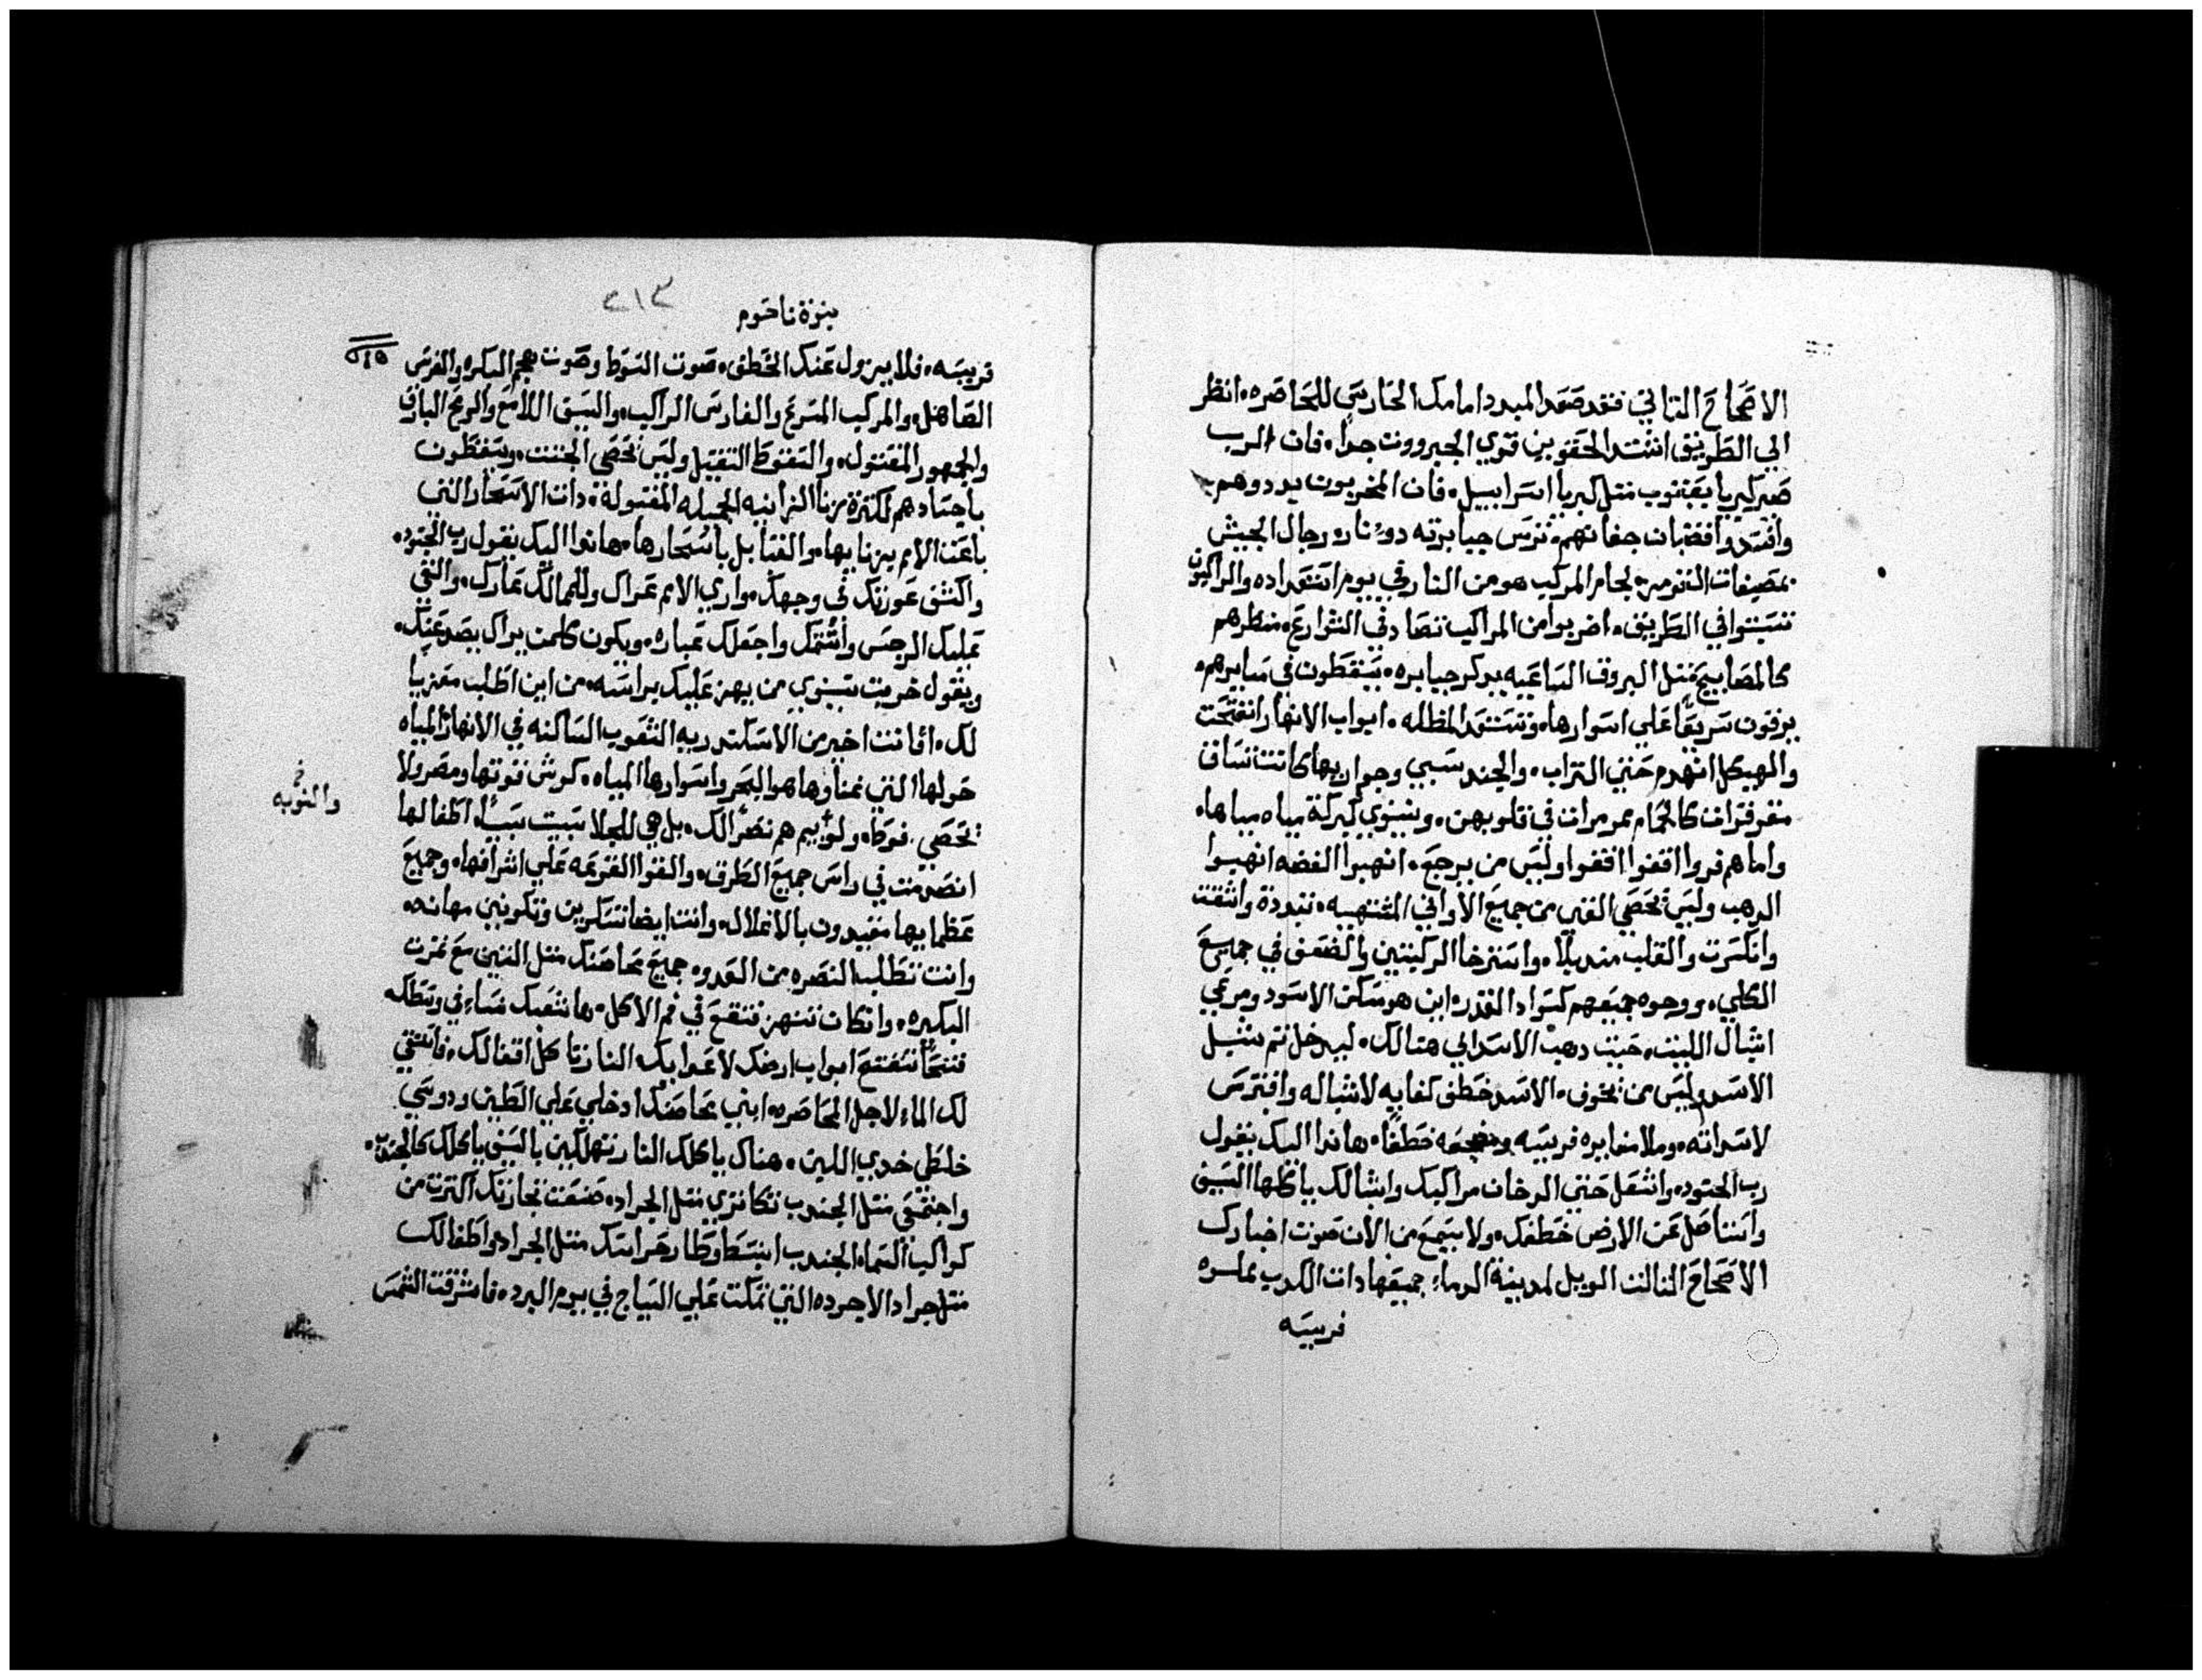 الاصحاح التاني فقد صعد المبدد امامك الحارس للمحاصره، انظر
الي الطريق اشتد الحقوين قوي الجبروت جداً، فان الرب
صير كبريا يعقوب متل كبريا اسراييل، فان المخربون بددوهم
وافسدوا قضبان جفانهم، ترس جبابرته دو نار، رجال الجيش
لجام المركب هو من النار في يوم استعداده والراكبون
تشبتوا في الطريق، اضربوا من المراكب تصادف في الشوارع، منظرهم
كالمصابيح متل البروق الساعيه يدكر جبابره، يسقطون في مسايرهم،
يرقون سريعاً علي اسوارها، وتستعد المظله، ابواب الانهار انفتحت
والهيكل انهدم حتي التراب، والجند سبي وجوارىها كانت تساق
مقرقرات كالحمام ممرمرات في قلوبهن، ونينوي كبركة مياه مياهها،
واما هم فروا اقفوا اقفوا وليس من يرجع، انهبوا الفضه انهبوا
الدهب وليس تحصي الغني من جميع الاواني المشتهيه، تبددة وانشقت
وانكسرت والقلب مندبلاً، واسترخا الركبتين والضعف في جميع
الكلي، ووجوه جميعهم كسواد القدر، اين هو مسكن الاسود ومرعي
اشبال الليث، حيت دهب الاسد الي هنالك، ليدخل تم شبل
الاسد وليس من يخوف، الاسد خطف كفايه لاشباله وافترس
لاسداته، وملا مغايره فريسه ومضجعه خطفاً، هاندا اليك يقول
رب الجنود، واشعل حتي الدخان مراكبك واشبالك ياكلها السيف
واستاصل عن الارض خطفك، ولا يسمع من الان صوت اخبارك
الاصحاح التالت الويل لمدينة الدماء جميعها دات الكدب مملوه
فريسه
نبوة ناحوم
٢١٣
٢١٥
فريسه، فلا يزول عنك الخطف، صوت السوط وصوت هجم البكره والفرس
الصاهل، والمركب المسرع والفارس الراكب، والسيف اللامع والرمح البارق
والجمهور المقتول، والسقوط التقيل وليس تحصي الجتت، ويسقطون
باجسادهم لكترة زنا الزانيه الجميله المقبولة، دات الاسحار التي
باعت الامم بزنايها، والقبايل باسحارها، هاندا اليك يقول رب الجنود،
واكشف عورتك في وجهك، واري الامم عراك وللممالك عارك، والقي
عليك الرجس واشتمك واجعلك عباره، ويكون كلمن يراك يصد عنك،
ويقول خربت نينوي من يهز عليك براسه، من اين اطلب معزيا
لك، افانت اخير من الاسكندريه الشعوب الساكنه في الانهار المياه
حولها التي غناوها هو البحر واسوارها المياه، كوش قوتها ومصر ولا
تحصي، فوط، ولوبيم هم نصراً لك، بل هي للجلا سبيت سبياً، اطفالها
والنوبه
انصرمت في راس جميع الطرق، والقوا القرعه علي اشرافها، وجميع
عظمايها مقيدون بالاغلال، وانت ايضا تسكرين وتكونين مهانه،
وانت تطلب النصره من العدو، جميع محاصنك متل التين مع تمرت
البكيره، وان كان تنهز فتقع في فم الاكل، ها شعبك نساء في وسطك
فتحاً تنفتح ابواب ارضك لاعدايك النار تاكل اقفالك، فاستقي
لك الماء لاجل المحاصره، ابني محاصنك ادخلي علي الطين ودوسي
خلطي خدي اللبن، هناك ياكلك النار تهلكين بالسيف ياكلك كالجندب،
واجتمعي متل الجندب تكاتري متل الجراد، صنعت تجارتك اكترت من
كواكب السماء، الجندب انبسط وطار، حراسك متل الجراد، واطفالك
متل جراد الاجرده التي تمكت علي السياج في يوم البرد، فاشرقت الشمس